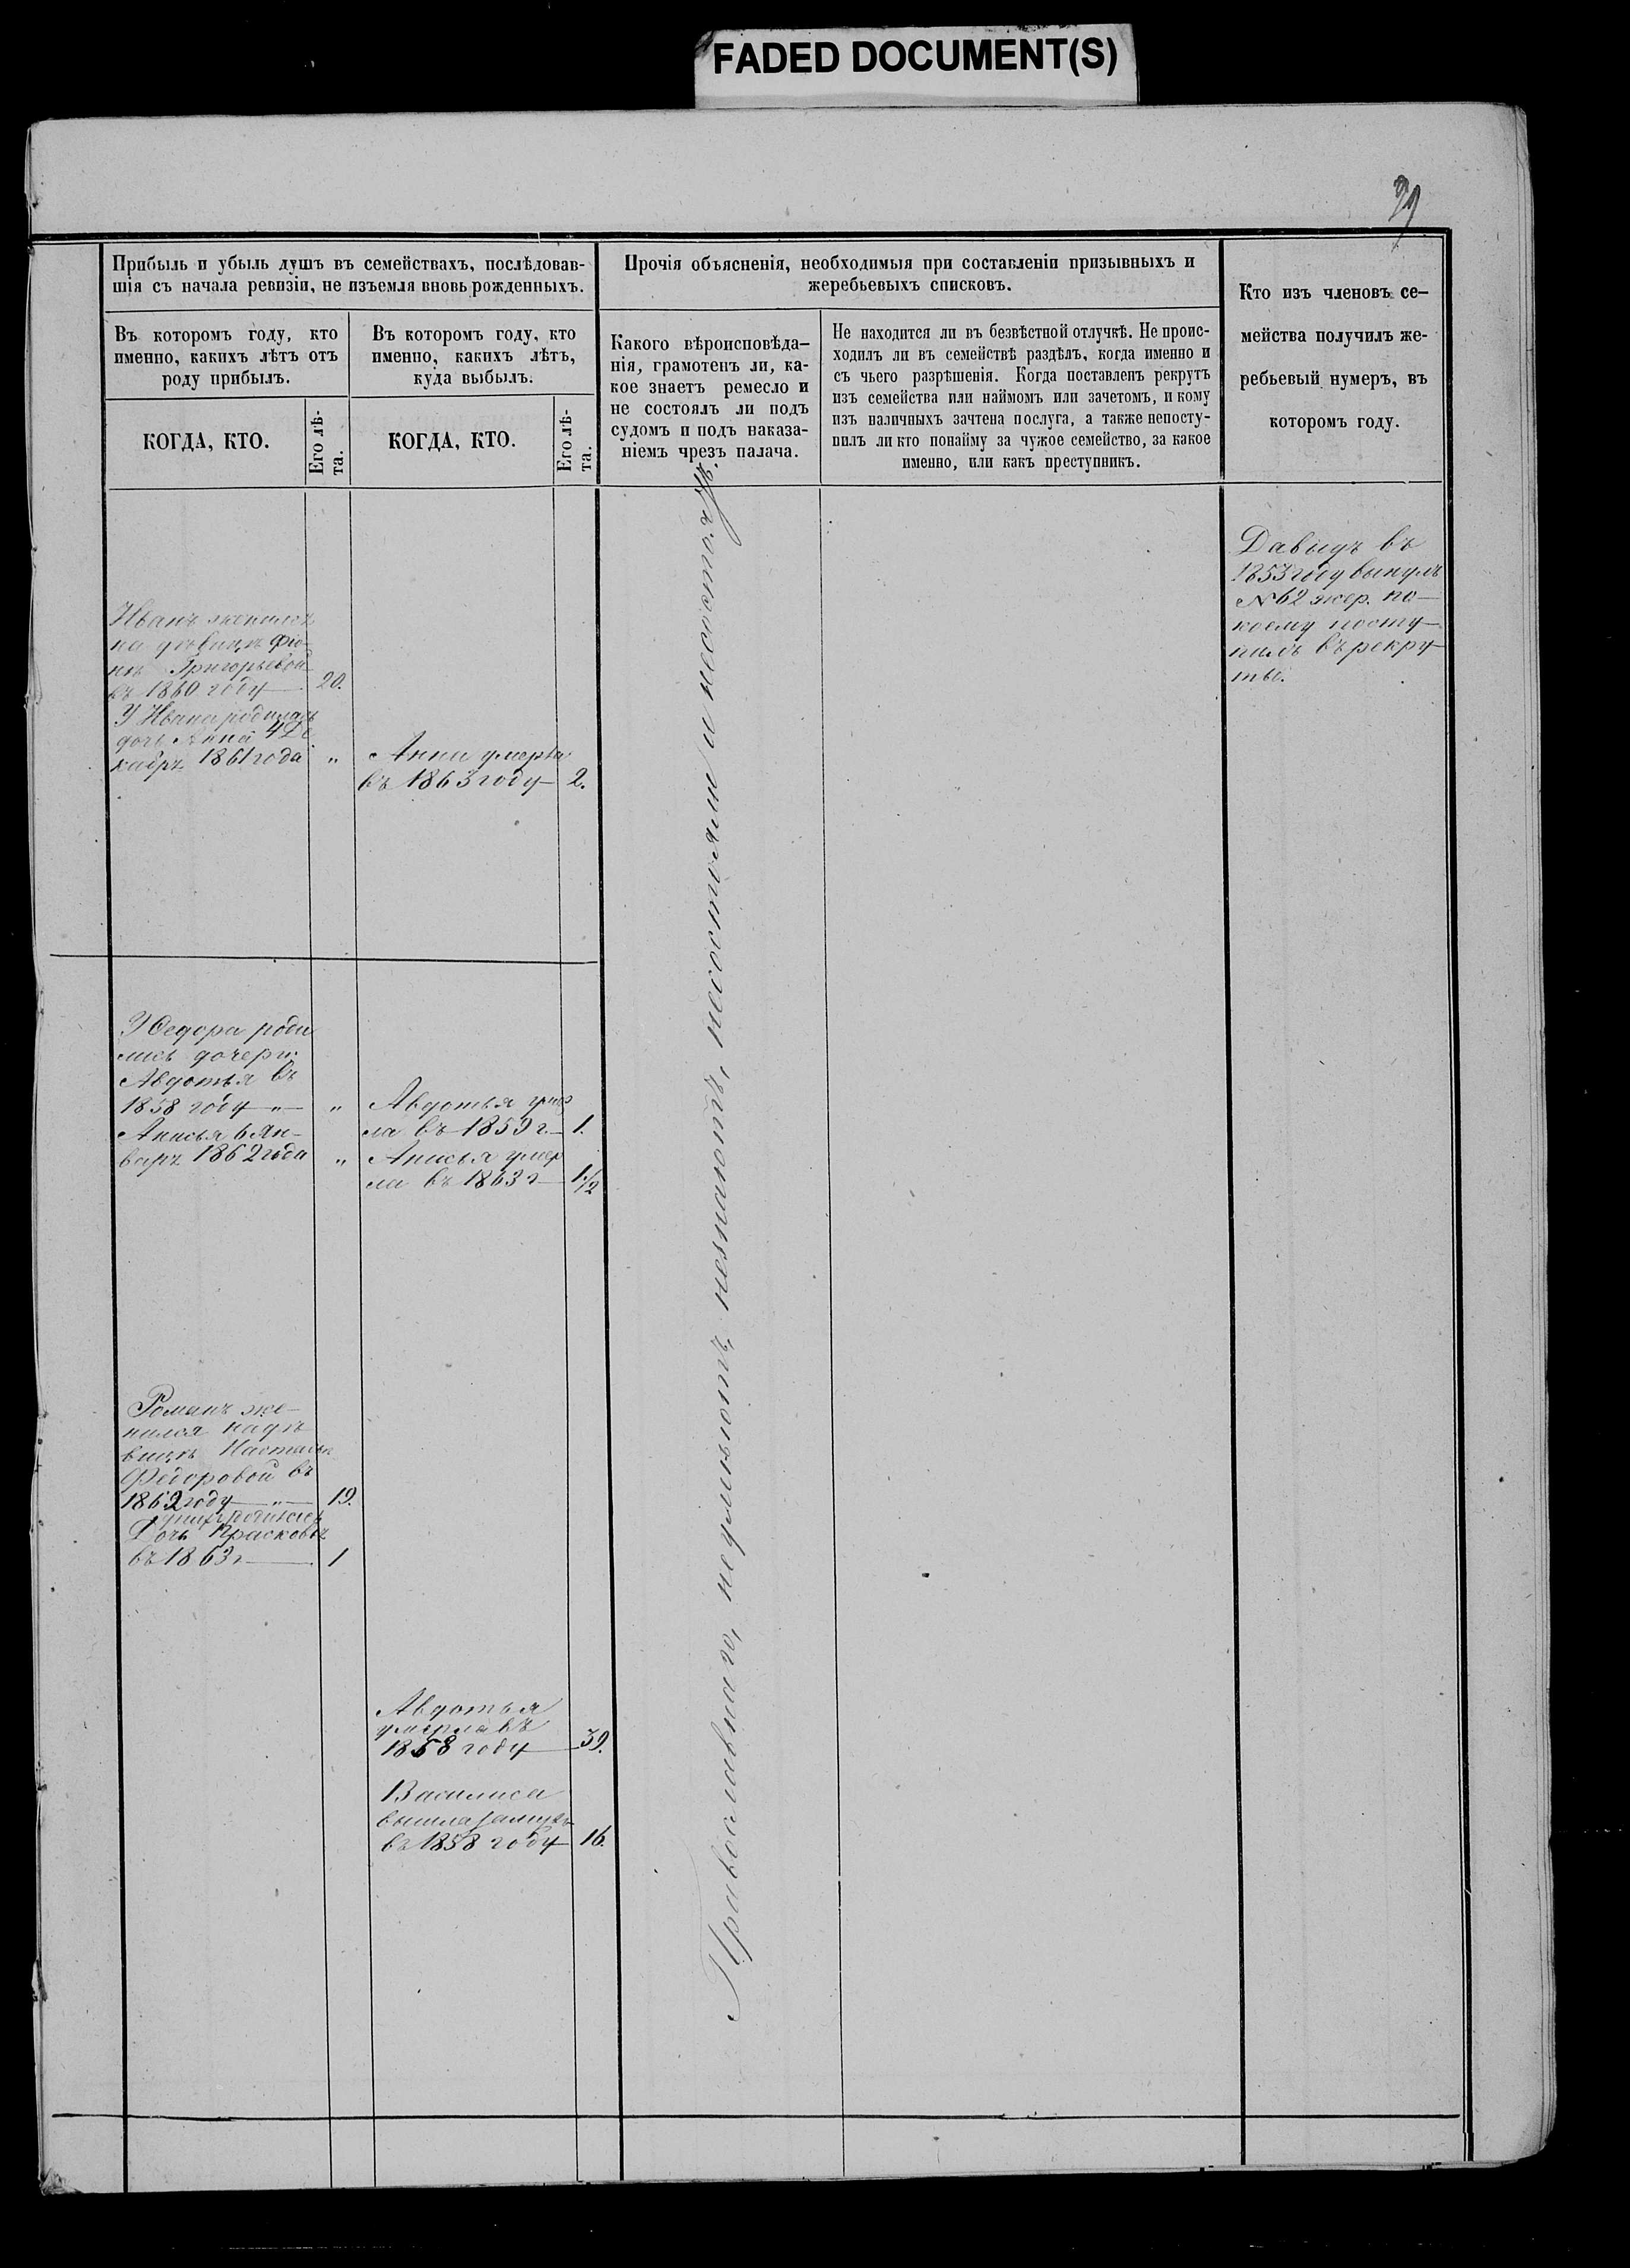 FADED DOCUMENT(S)
Прибыль и убыль душъ въ семействахъ, послѣдовав-
шія съ начала ревизіи, не изъемля вновь рожденныхъ.
Въ которомъ году, кто
именно, какихъ лѣтъ отъ
роду прибылъ.
КОГДА, КТО.
Его лѣ-
та.
Въ которомъ году, кто
именно, какихъ лѣтъ,
куда выбылъ.
КОГДА, КТО.
Его лѣ-
та.
Прочія объясненія, необходимыя при составленіи призывныхъ и
жеребьевыхъ списковъ.
Какого вѣроисповѣда-
нія, грамотенъ ли, ка-
кое знаетъ ремесло и
не состоялъ ли подъ
судомъ и подъ наказа-
ніемъ чрезъ палача.
Не находится ли въ безвѣстной отлучкѣ. Не проис-
ходилъ ли въ семействѣ раздѣлъ, когда именно и
съ чьего разрѣшенія. Когда поставленъ рекрутъ
изъ семейства или наймомъ или зачетомъ, и кому
изъ наличныхъ зачтена послуга, а также непосту-
пилъ ли кто понайму за чужое семейство, за какое
именно, или какъ преступникъ.
Кто изъ членовъ се-
мейства получилъ же-
ребьевый нумеръ, въ
которомъ году.
Иванъ женился
на дѣвицѣ
Григорьевой
въ 1860 году 20.
У Ивана родилась
дочь Анна 4 Де
кабрѣ 1861 года "
Анна умерла
въ 1863 году 2.
У Федора роди
лись дочери:
Авдотья въ
1858 году " "
Анисья 6 Ян-
варѣ 1862 года "
Авдотья умер
ла въ 1859 г. 1.
Анисья умер
ла въ 1863 г 1 1/2
Романъ же-
нился на дѣ
вицѣ Настасьѣ
Федоровой въ
1862 году " 19.
у нихъ родилась
Дочь Прасковья
въ 1863 г 1
Авдотья
умерла въ
1858 году 39.
Василиса
вышла замужъ
въ 1858 году 16.
Православнаго, неумѣютъ, незнаютъ, несостояли и несостоятъ.
Давыдъ въ
1853 году вынулъ
№ 62 жер. по
коему посту-
пилъ въ рекру-
ты.